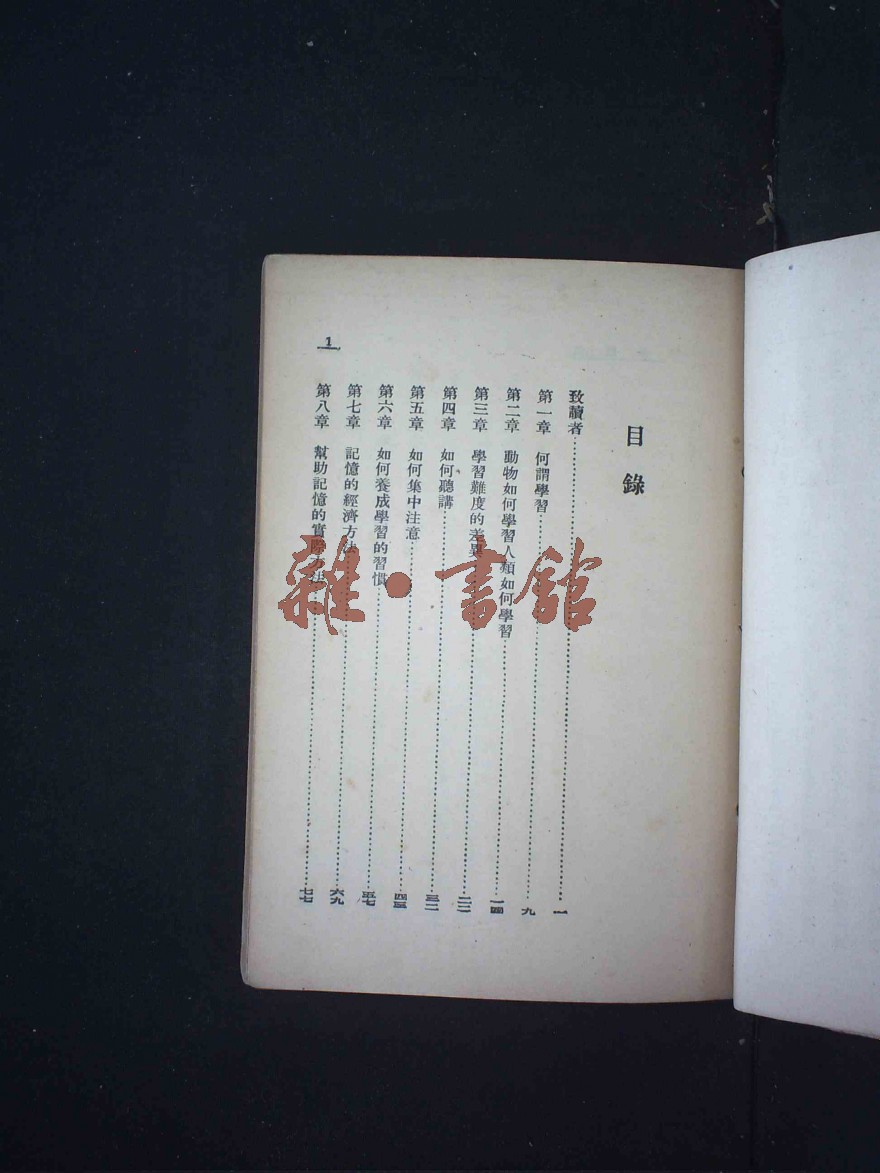 目錄
致讀者……一
第一章 何謂學習……九
第二章 動物如何學習人類如何學習……一四
第三章 學習難度的差異……二二
第四章 如何聽講……三二
第五章 如何集中注意……四三
第六章 如何養成學習的習慣……五七
第七章 記憶的經濟方法……六九
第八章 幫助記憶的實際方法……七七
1
雜·書館